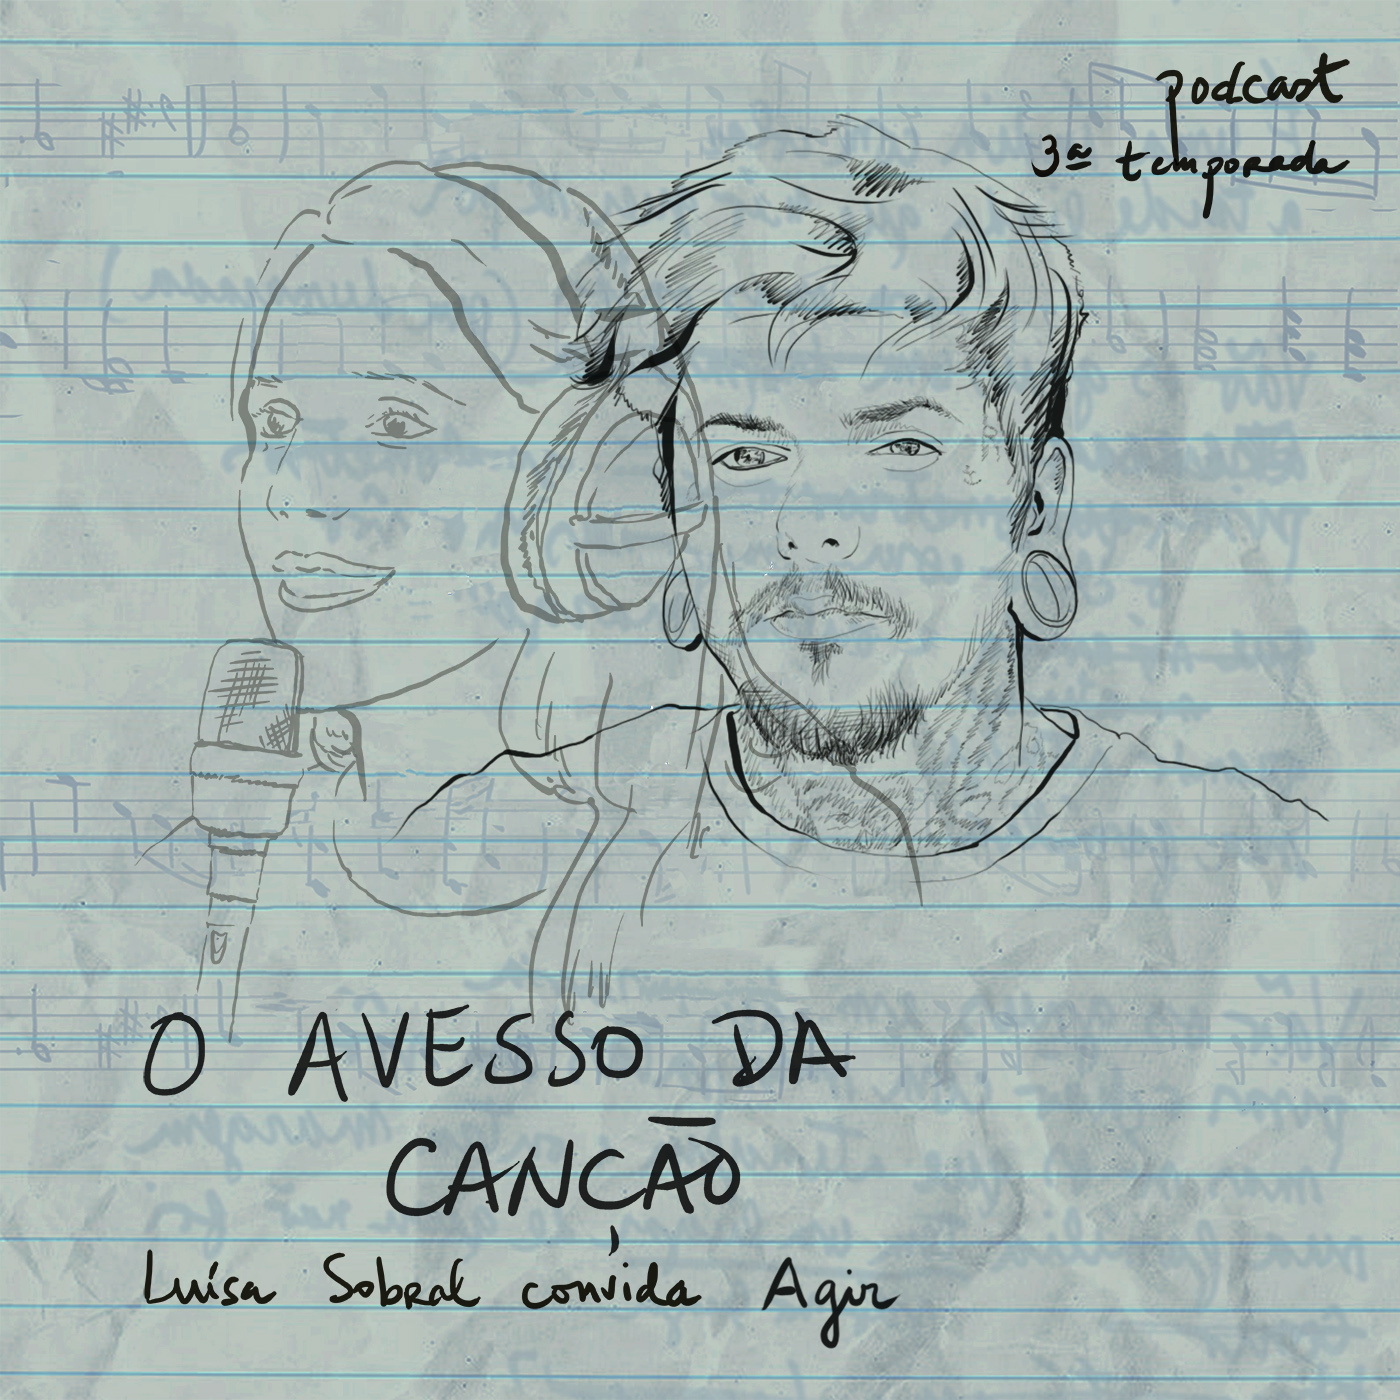 podcast
3ª temporada
O AVESSO DA
CANÇÃO
Luísa Sobral convida Agir